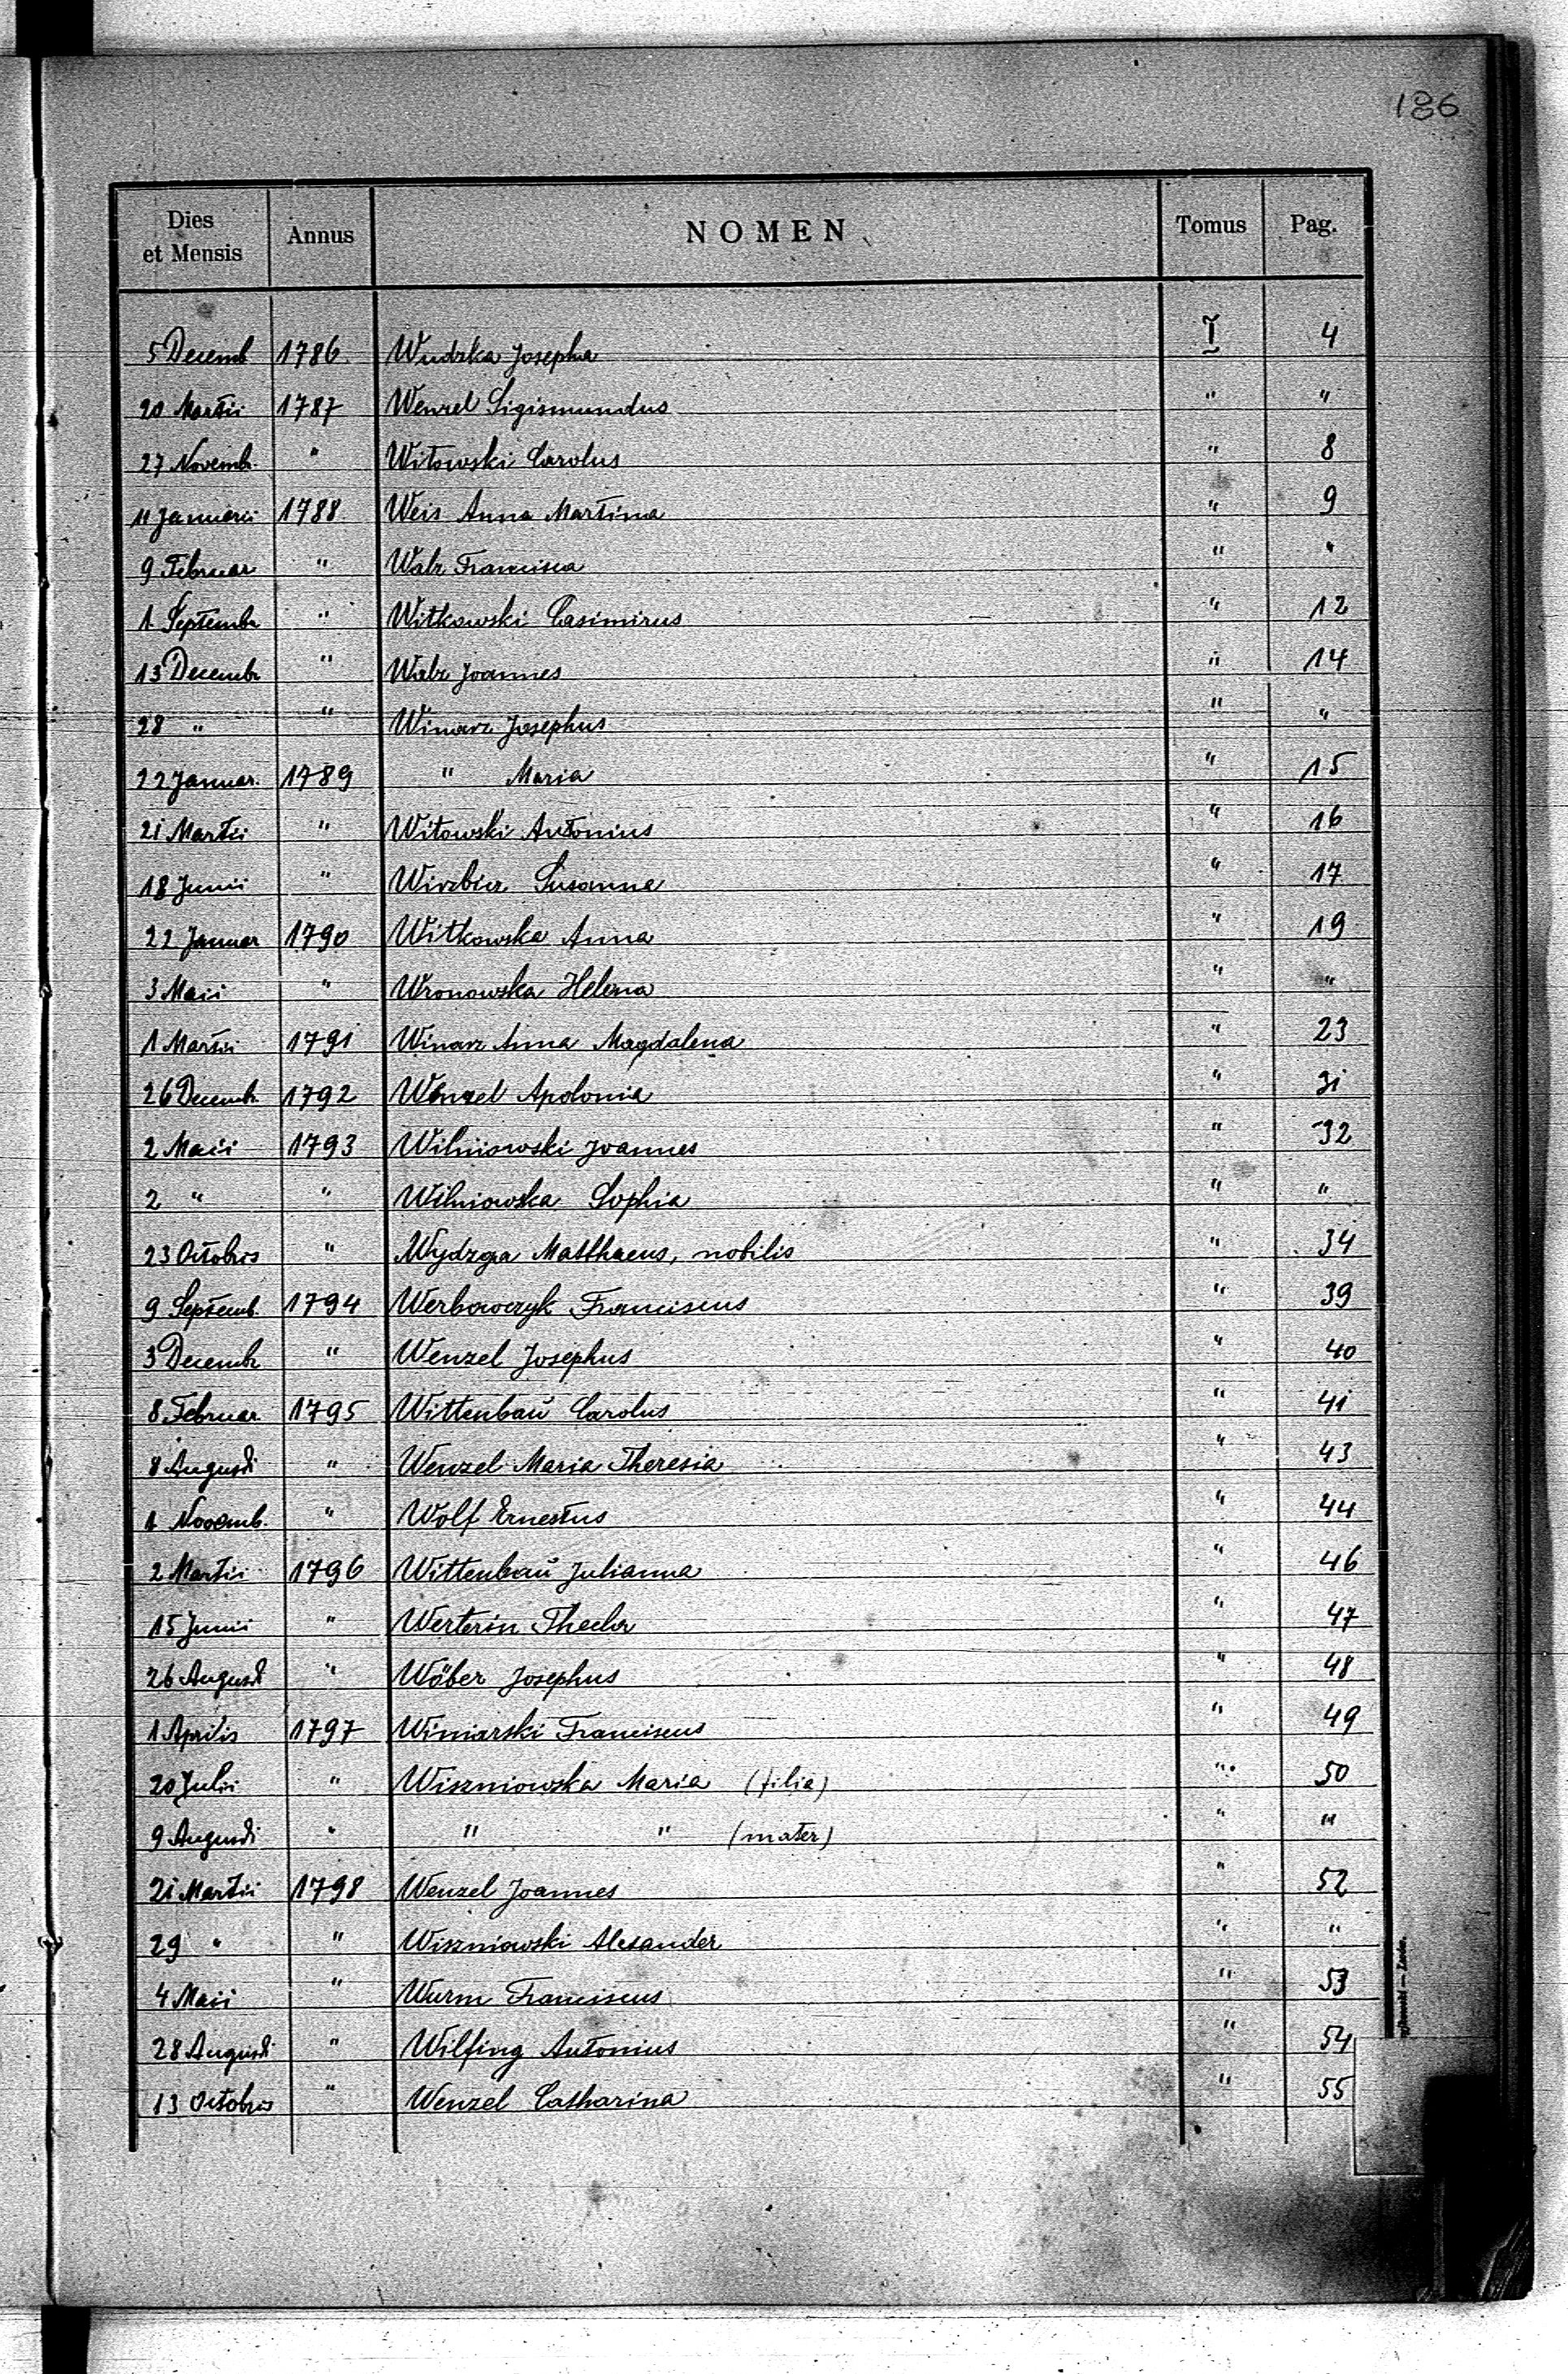 186
Dies et Mensis Annus NOMEN Tomus Pag.
5 Decemb 1786. Wudzka Josepha I 4
20 Martii 1787 Wenzel Sigismundus " "
27 Novemb. " Witowski Carolus " 8
11 Januarii 1788 Weis Anna Martina " 9
9 Februar " Walz Francisca " "
1 Septembr " Witkowski Casimirus " 12
13 Decembr " Walz Joannes " 14
28 " " Winarz Josephus " "
22 Januar. 1789 " Maria " 15
21 Martii " Witowski Antonius " 16
18 Junii " Wirzbicz Susanna " 17
22 Januar 1790 Witkowska Anna " 19
3 Maii " Wronowska Helena " "
1 Martii 1791 Winarz Anna Magdalena " 23
26 Decemb. 1792 Wenzel Apolonia " 31
2 Maii 1793 Wilniowski Joannes " 32
2 " " Wilniowska Sophia " "
23 Octobris " Wydzga Matthaeus, nobilis " 34
9 Septemb. 1794 Werbowczyk Franciscus " 39
3 Decembr " Wenzel Josephus " 40
8 Februar 1795 Wittenbaŭ Carolus " 41
8 Augusti " Wenzel Maria Theresia " 43
1 Novemb. " Wolf Ernestus " 44
2 Martii 1796 Wittenbaŭ Julianna " 46
15 Junii " Werterin Thecla " 47
26 Augusti " Wöber Josephus " 48
1 Aprilis 1797 Winiarski Franciscus " 49
20 Julii " Wiszniowska Maria (filia) " 50
9 Augusti " " " (mater) " "
21 Martii 1798 Wenzel Joannes " 52
29 " " Wiszniowski Alexander " "
4 Maii " Wurm Franciscus " 53
28 Augusti " Wilfing Antonius " 54
13 Octobris " Wenzel Catharina " 55